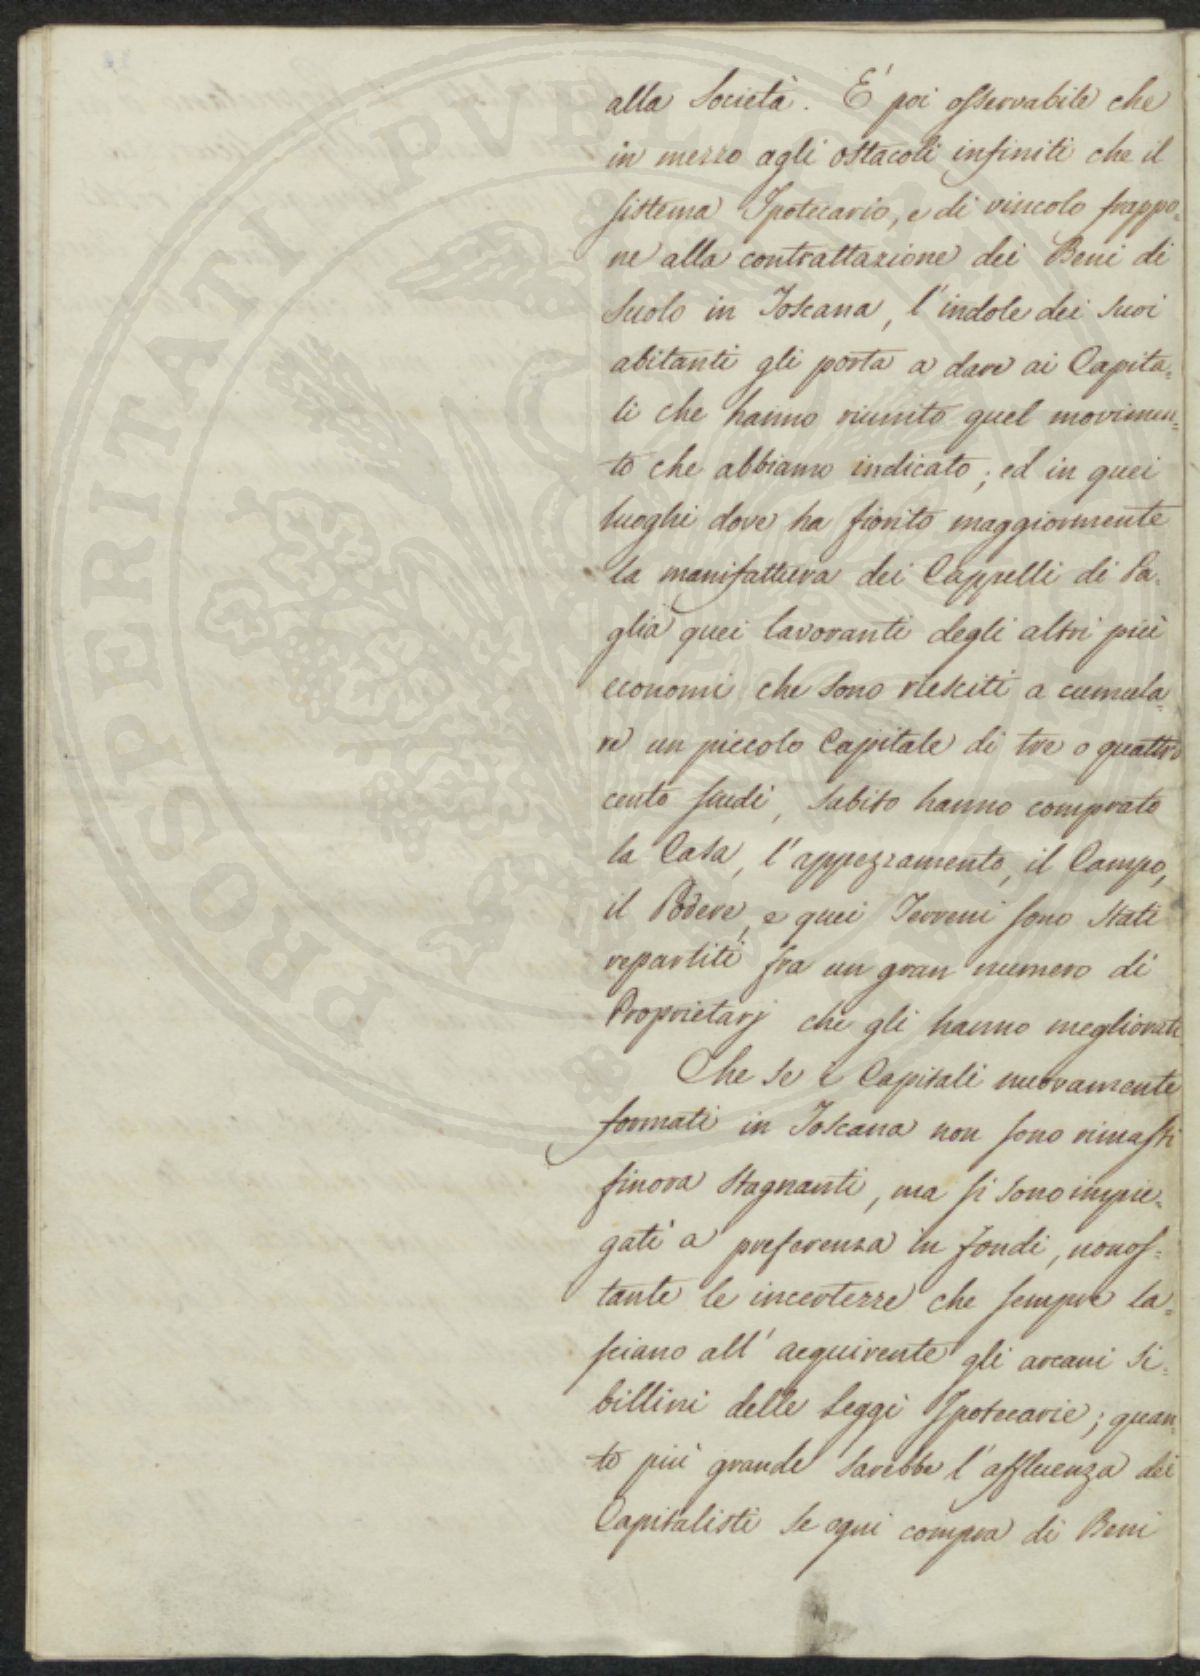 alla Società. E' poi osservabile che
in mezzo agli ostacoli infiniti che il
sistema Ipotecario, e di vincolo frappo=
ne alla contrattazione dei Beni di
Suolo in Toscana, l'indole dei suoi
abitanti gli porta a dare ai Capita=
li che hanno riunito quel movimen=
to che abbiamo indicato; ed in quei
luoghi dove ha fiorito maggiormente
la manifattura dei Cappelli di Pa=
glia quei lavoranti degli altri più
economi che sono riesciti a cumula=
re un piccolo Capitale di tre o quattro
cento scudi, subito hanno comprato
la Casa, l'appezzamento, il Campo,
il Podere, e quei Terreni sono stati
repartiti fra un gran numero di
Proprietarj che gli hanno megliorati
Che se i Capitali nuovamente
formati in Toscana non sono rimasti
finora stagnanti, ma si sono impie=
gati a preferenza in fondi, nonos=
tante le incertezze che sempre la=
sciano all'acquirente gli arcani Si=
billini delle Leggi Ipotecarie; quan=
to più grande sarebbe l'affluenza dei
Capitalisti se ogni compra di Beni
PROSPERITATI PUBLICAE AUGENDAE